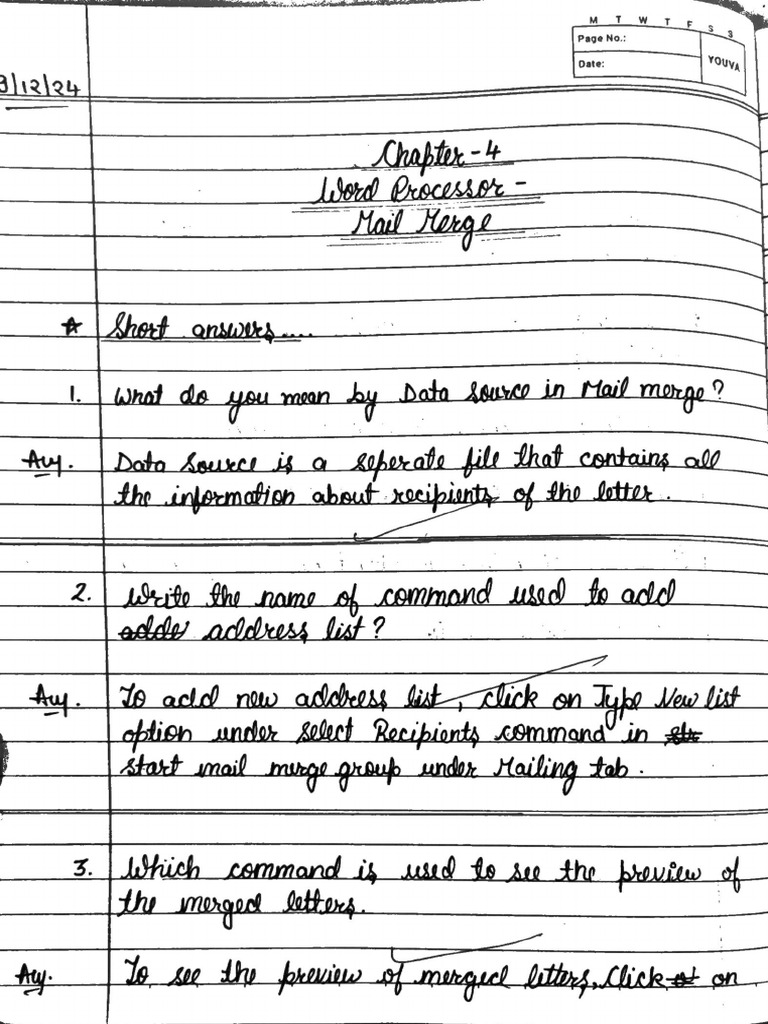 M T W T F S S
Page No.:
Date:
YOUVA
3/12/24
Chapter-4
Word Processor-
Mail Merge
Short answers....
1. What do you mean by Data Source in Mail merge?
Ans. Data Source is a seperate file that contains all
the information about recipients of the letter.
2. Write the name of command used to add
address list?
Ans. To add new address list, click on Type New list
option under select Recipients command in
start mail merge group under Mailing tab.
3. Which command is used to see the preview of
the merged letters.
Ans. To see the preview of merged letters, Click on